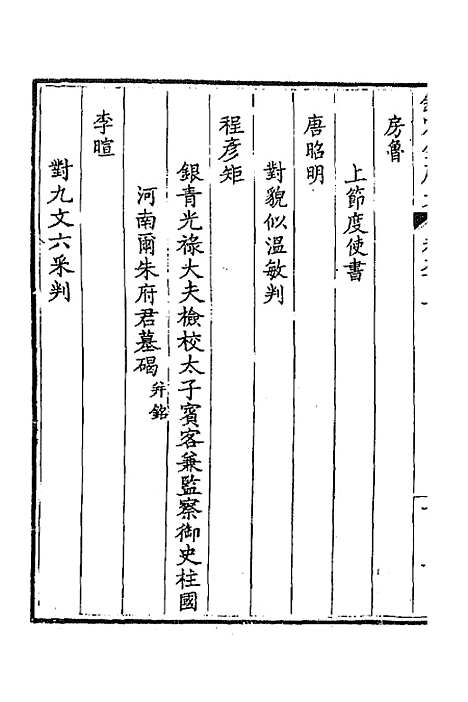 房魯
上節度使書
唐昭明
對貌似溫敏判
程彥矩
銀青光祿大夫檢校太子賓客兼監察御史柱國
河南爾朱府君墓碣并銘
李暄
對九文六采判